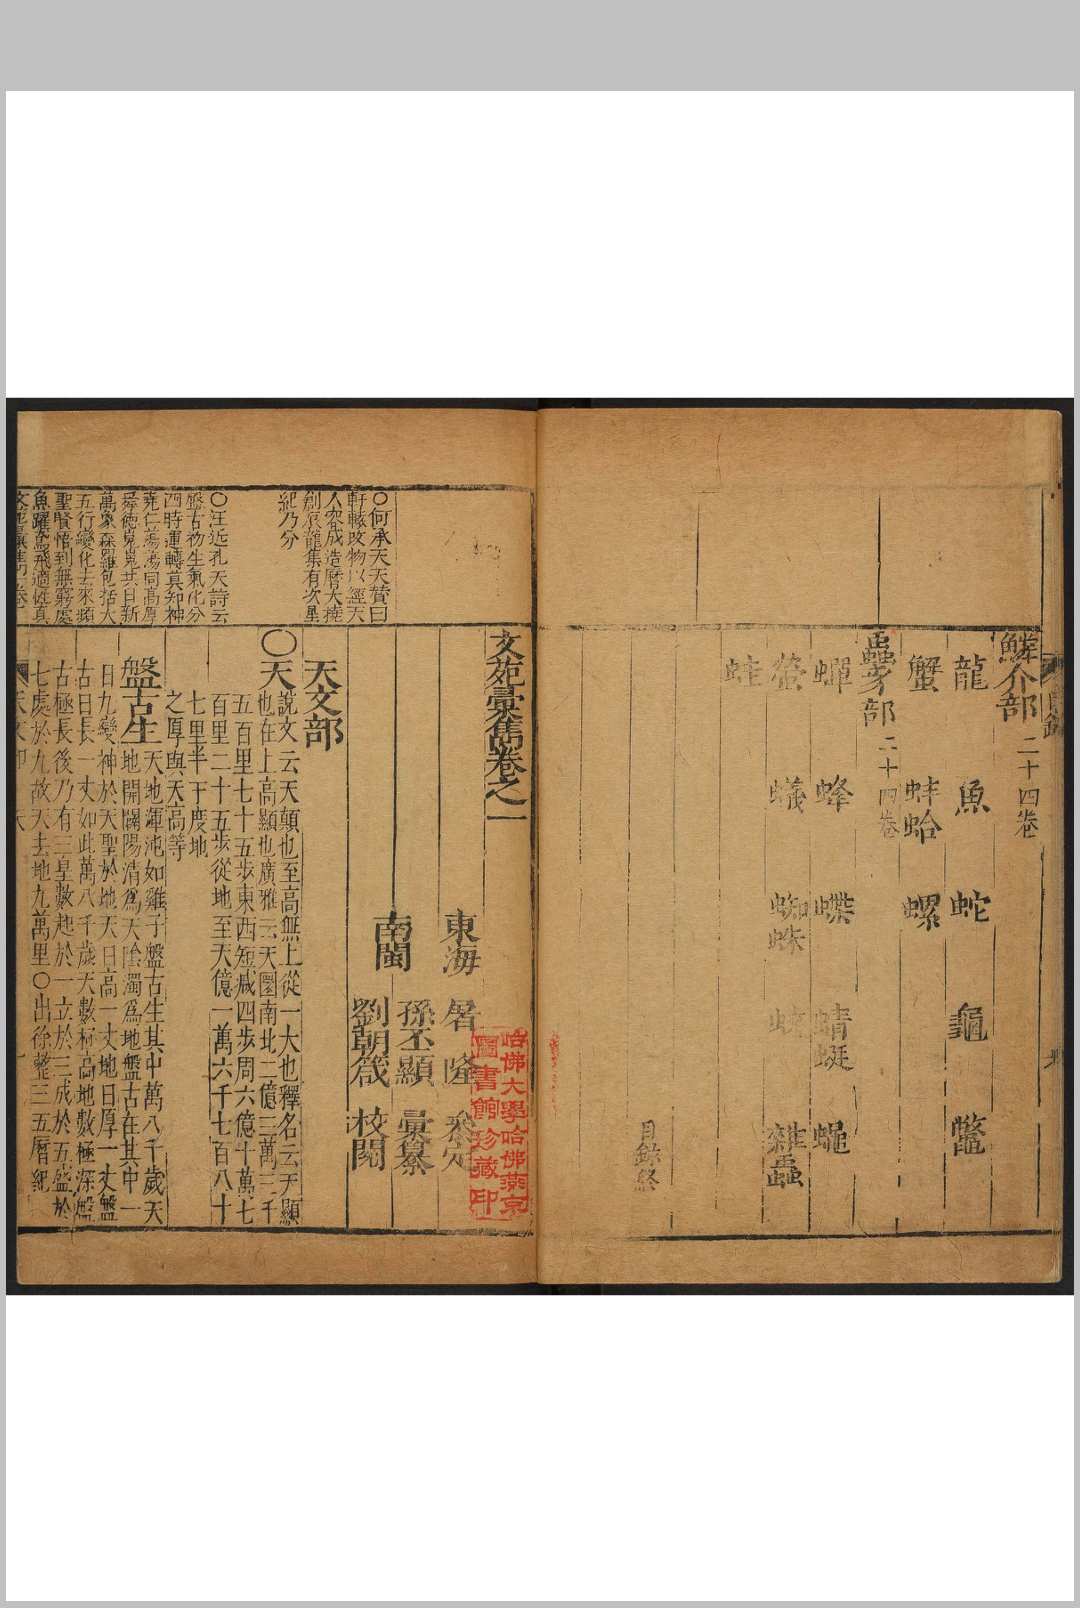 鱗介部二十四卷
龍 魚 蛇 龜 鼈
蟹 蚌蛤 螺
蟲豸部二十四卷
蟬 蜂 蝶 蜻蜓 蠅
螢 蟻 蜘蛛 雜蟲
蛙
目錄終
文苑彙雋卷之一
東海 屠隆 參定
孫丕顯 彙纂
南閩
劉朝箴 校閱
天文部
〇天說文云天顛也至高無上從一大也釋名云天顯
也在上高顯也廣雅云天圜南北二億三萬三千
五百里七十五步東西短減四步周六億十萬七
百里二十五步從地至天億一萬六千七百八十
七里半下度地
之厚與天高等
盤古生天地渾沌如雞子盤古生其中萬八千歲天
地開闢陽清爲天陰濁爲地盤古在其中一
日九變神於天聖於地天日高一丈地日厚一丈盤
古日長一丈如此萬八千歲天數極高地數極深盤
古極長後乃有三皇數起於一立於三成於五盛於
七處於九故天去地九萬里〇出徐整三五曆紀
〇何承天天贊曰
軒轅改物以經天
人容成造曆大撓
創辰龍集有次星
紀乃分
〇汪近孔天詩云
盤古初生氣化分
四時運轉真知神
堯仁蕩蕩同高厚
舜德巍巍共日新
萬象森羅包括大
五行變化去來頻
聖賢悟到無窮處
魚躍鳶飛適性真
哈佛大學哈佛燕京
圖書館珍藏印